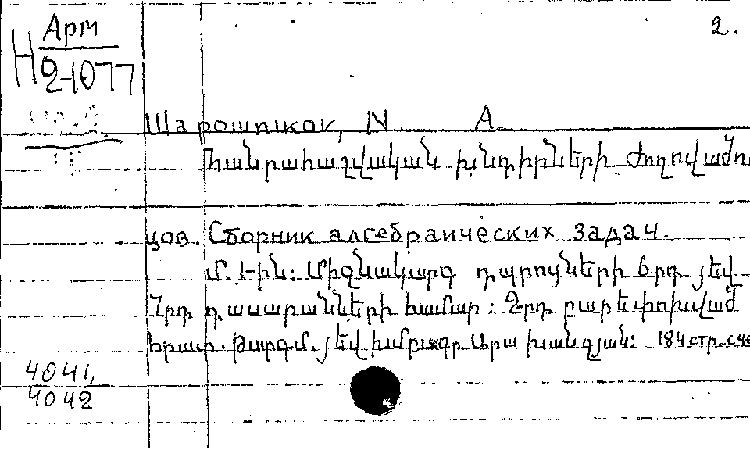 Арм
Н 2-1077
2.
Հանրահաշվական խնդիրների ժողովածու
цов. Сборник алгебраических задач.
Մ. 1-ին: Միջնակարգ դպրոցների 6րդ յեվ
7րդ դասարանների համար: 2րդ բարեփոխված
հրատ. Թարգմ. յեվ խմբագր. Արա 184 стр. с
4041,
4042